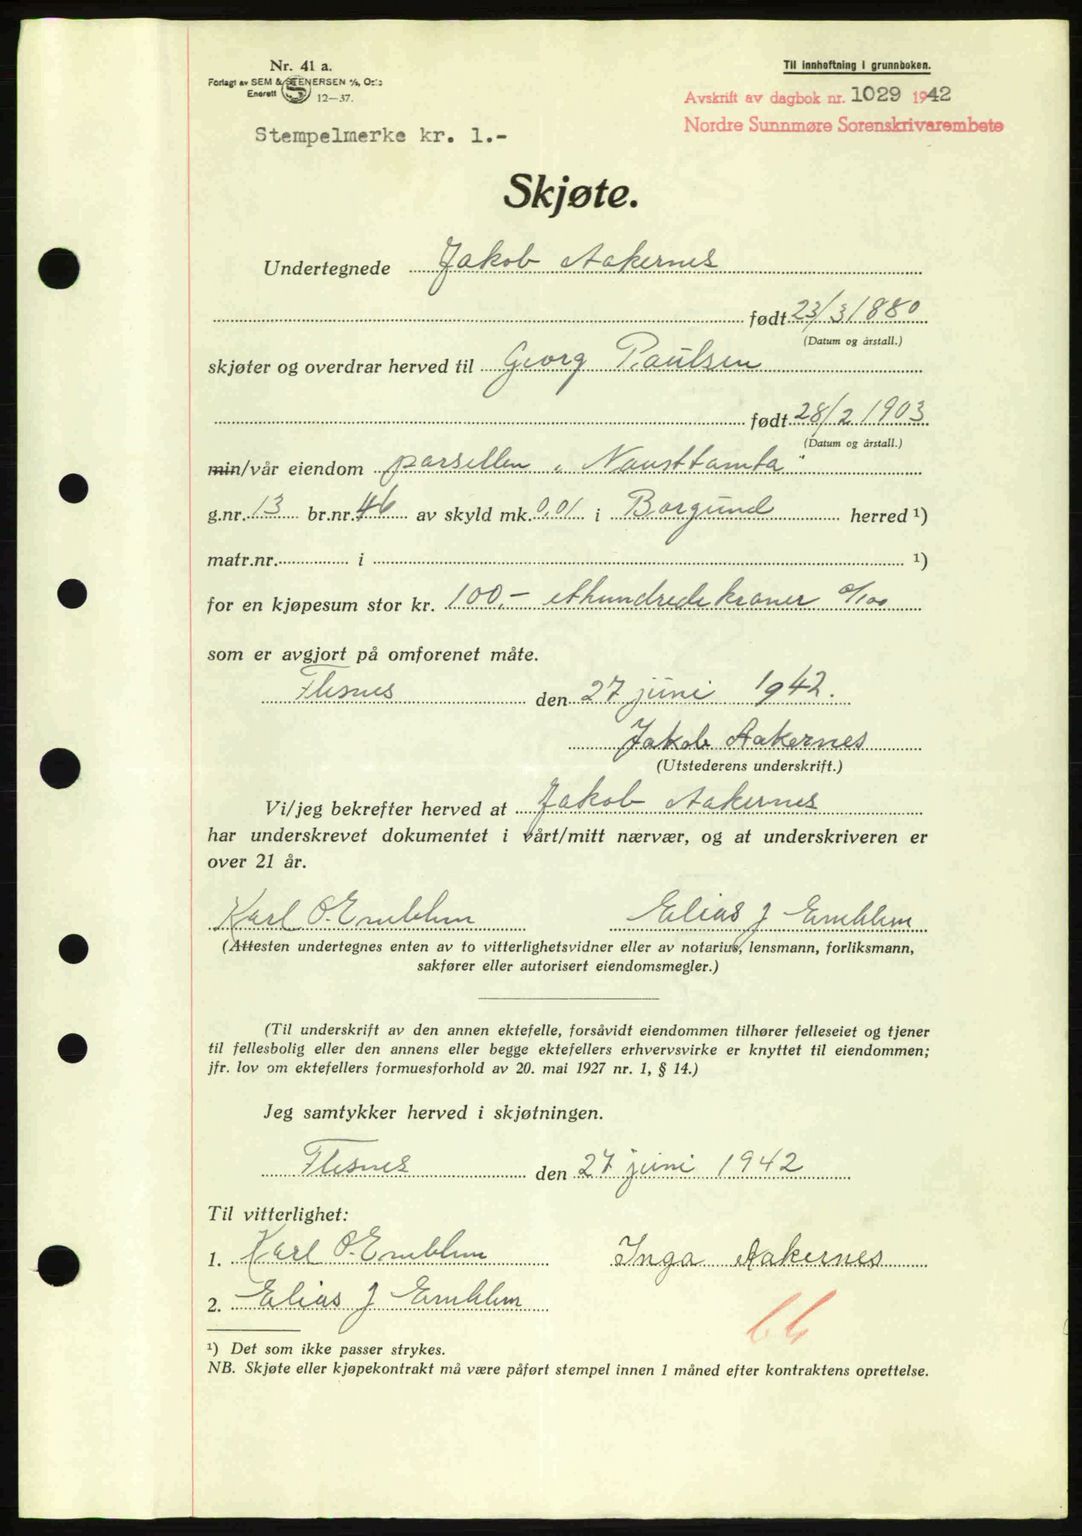 Nr. 41 a.
Forlagt av SEM & STENERSEN A/S, Oslo
Enerett 12—37.
Til innheftning i grunnboken.
Avskrift av dagbok nr. 1029 1942
Nordre Sunnmøre Sorenskriverembete
Stempelmerke kr. 1.-
Skjøte.
Undertegnede Jakob Aakernes
født 23/3 1880
(Datum og årstall.)
skjøter og overdrar herved til Georg Paulsen
født 28/2 1903
(Datum og årstall.)
min/vår eiendom parsellen "Nausttomta"
g.nr. 13 br.nr. 46 av skyld mk. 0,01 i Borgund herred ¹)
matr.nr. i ¹)
for en kjøpesum stor kr. 100,- ethundrede kroner 0/100
som er avgjort på omforenet måte.
Flisnes den 27 juni 1942.
Jakob Aakernes
(Utstederens underskrift.)
Vi/jeg bekrefter herved at Jakob Aakernes
har underskrevet dokumentet i vårt/mitt nærvær, og at underskriveren er
over 21 år.
Karl O. Emblem Elias J Emblem
(Attesten undertegnes enten av to vitterlighetsvidner eller av notarius, lensmann, forliksmann,
sakfører eller autorisert eiendomsmegler.)
(Til underskrift av den annen ektefelle, forsåvidt eiendommen tilhører felleseiet og tjener
til fellesbolig eller den annens eller begge ektefellers erhvervsvirke er knyttet til eiendommen;
jfr. lov om ektefellers formuesforhold av 20. mai 1927 nr. 1, § 14.)
Jeg samtykker herved i skjøtningen.
Flisnes den 27 juni 1942
Til vitterlighet:
1. Karl O. Emblem Inga Aakernes
2. Elias J Emblem
¹) Det som ikke passer strykes.
NB. Skjøte eller kjøpekontrakt må være påført stempel innen 1 måned efter kontraktens oprettelse.